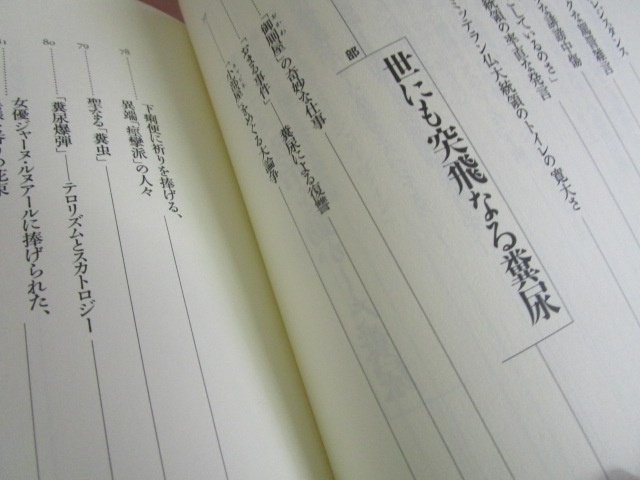 な誹謗中傷
しているのさ」
統領の率直な発言
ミッテラン仏大統領のトイレの寛大さ
部
世にも突飛なる糞尿
の奇妙な仕事
事件」――糞尿による復讐
をめぐる大論争
78
下痢便に祈りを捧げる、
異端「痙攣派」の人々
79
聖なる「糞虫」
80
「糞尿爆弾」――テロリズムとスカトロジー
女優ジャーヌ・ルスアールに捧げられた、
の花束